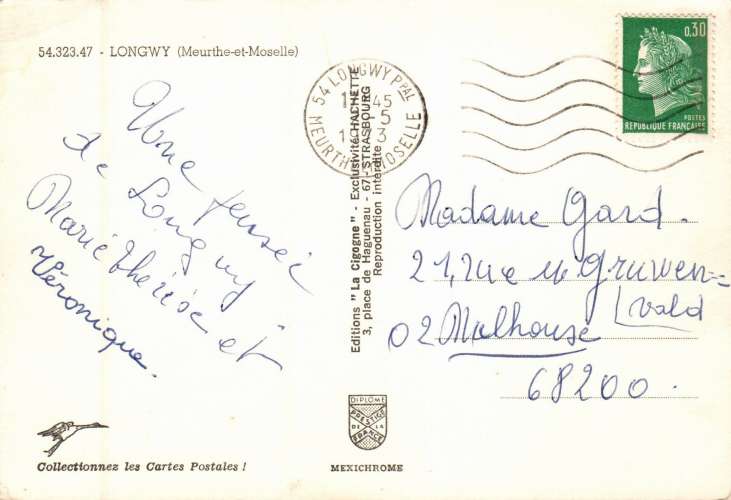 54.323.47 - LONGWY (Meurthe-et-Moselle)
Une pensée
de Longwy
Marie thérèse et
Véronique.
Collectionnez les Cartes Postales !
Editions "La Cigogne" - Exclusivité HACHETTE
3, place de Haguenau - 67-STRASBOURG
Reproduction interdite
DIPLOME
PRESTIGE
DE LA
FRANCE
MEXICHROME
54 LONGWY PPAL
45
5
1 3
MEURTHE MOSELLE
0,30
POSTES
REPUBLIQUE FRANÇAISE
Madame Gard.
21, rue Gruwen=
wald
02 Mulhouse
68200.